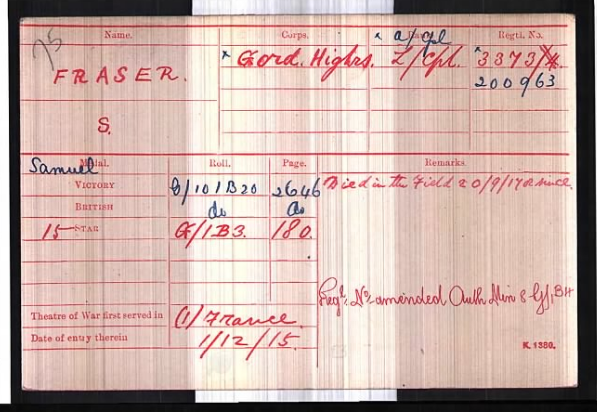 75
Name. Corps. Rank. Regtl. No.
a/Cpl
FRASER. x Gord. Highrs. L/Cpl. x 3373
200963
S.
Samuel
Medal. Roll. Page. Remarks.
VICTORY G/101B20 2646 Died in the Field 20/9/17 or since.
BRITISH do do
15 STAR G/1B3. 180.
Regt. No. amended Auth Min 8 BH
Theatre of War first served in (1) France.
Date of entry therein 1/12/15.
K. 1380.